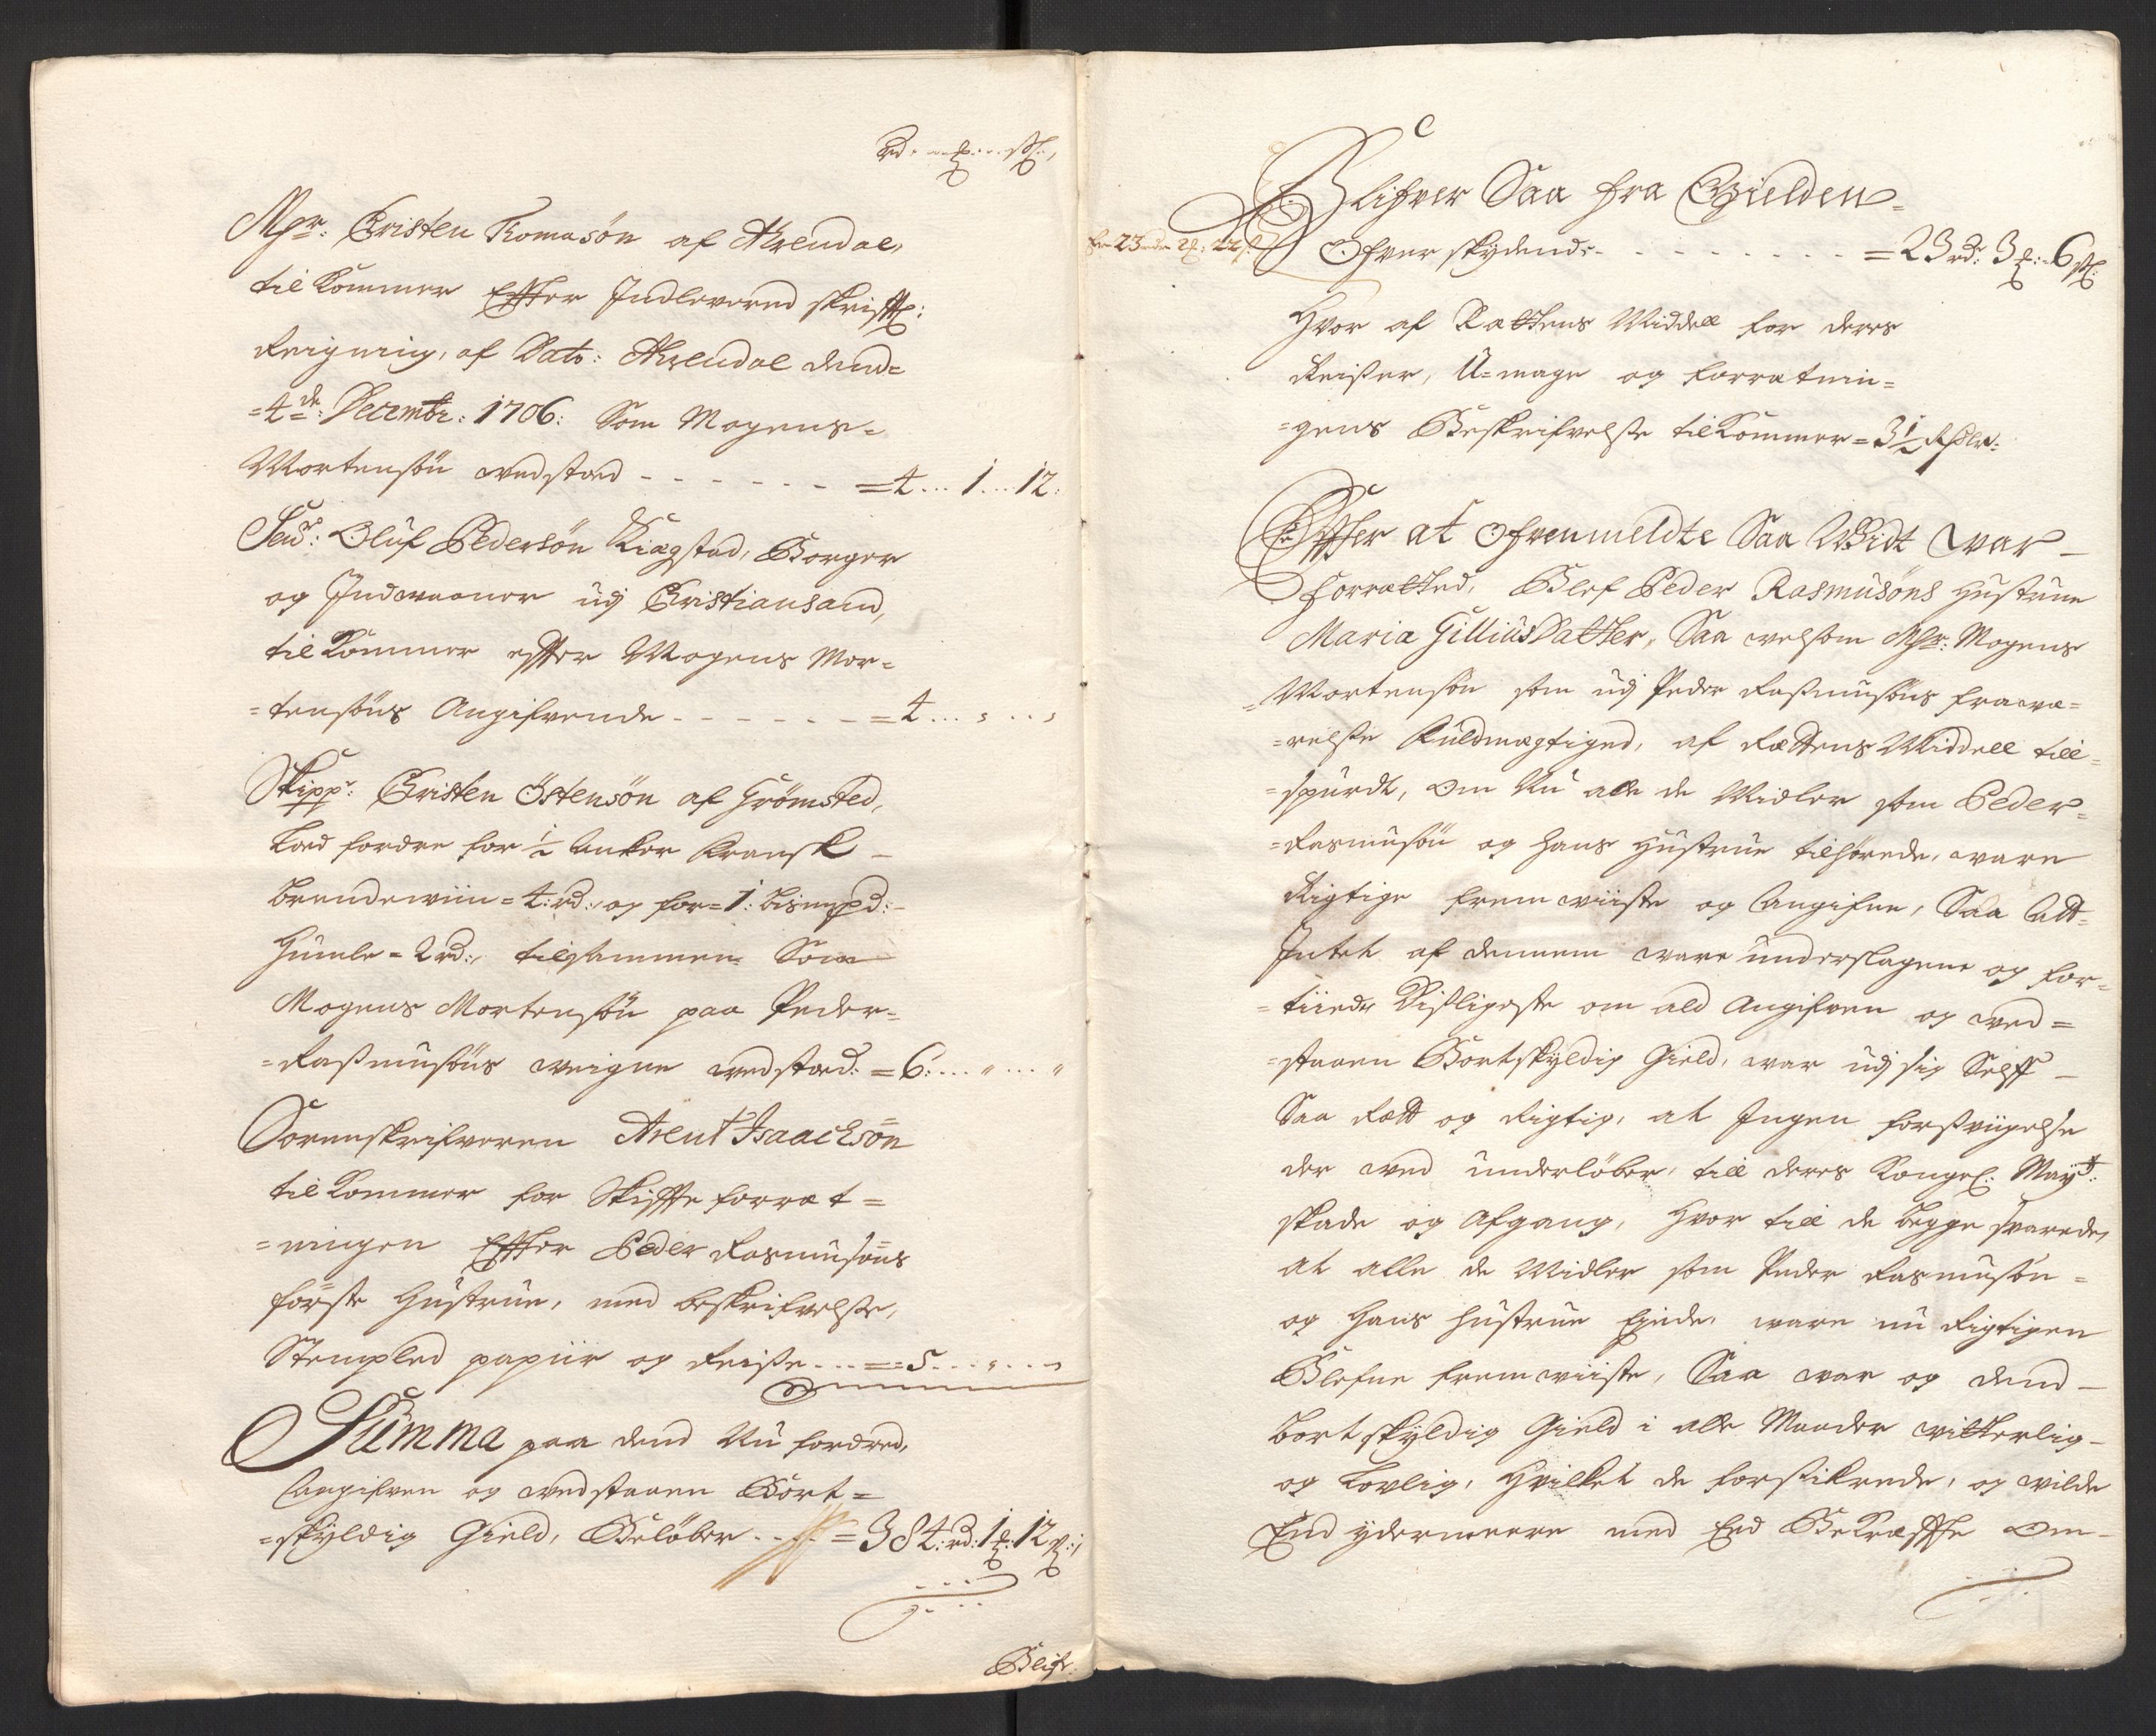 Rd: ... ꝼ: ... sk:
Msr: Christen Tomasön af Arendal,
tilkommer Effter Indlevered skrifftl:
Reigning, af Dato: Arendal dend=
=4de: Decembr: 1706: Som Mogens=
Mortensön vedstoed - - - - - - =4 ... 1 ... 12:
Seur: Oluf Pedersön Kiegstad, Borger
og Indwaaner udj Christiansand,
tilkommer effter Mogens Mor=
=tensöns Angifvende - - - - - - =4 ... „ ... „
Skippr: Christen Östensön af Grömsted,
Lod fordre for ½ Anker Fransk
brendeviin = 4: rd: og for = 1: bismpd:
Humle = 2 rd:, tilsammen Som
Mogens Mortensön paa Peder=
=Rasmusöns veigne vedstoed: = 6: ... „ ... „
Sorenskrifveren Arent Isaachsön
tilkommer for Skiffte forret=
=ningen Effter Peder Rasmusöns
förste Hustrue, med beskrifvelse,
Stempled papiir og Reise ... = 5 ... „ ... „
Summa paa dend Nu fordred,
Angifven og vedstaaen Bort=
=skyldig Gield, Beløber - - = 384: rd: 1 ꝼ: 12 sk:
Blifr:
Blifver Saa fra Gielden=
Er 23 rdr 2 ꝼ: 22 s:
Ofverskydende - - - - - - - - =23 rd: 3 ꝼ: 6 sk:
Hvor af Rettens Middell for deres
Reiser, U=mage og forretnin=
=gens Beskrifvelse tilkommer = 3½ Rdlr:
Effter at Ofvenmeldte Saa Widt var
forretted, Blef Peder Rasmusöns Hustrue
Maria Gillius Datter, Saa velsom Msr: Mogens
Mortensön som udj Peder Rasmusöns frawæ=
=relse Fuldmægtiged, af Rettens Middell till=
=spurdt, om Nu alle de Midler som Peder=
=Rasmusön og hans Hustrue tilhörede, vare
Rigtige fremviiste og Angifne, Saa Att=
Intet af dennem vare underslagene og for=
=tiede Disligeste om ald Angifven og ved=
=staaen Bortskyldig Gield, var udj sig Selff
Saa Rett og Rigtig, at Ingen forsviigelse
der ved underlöber, till deres Kongel: Mayts:
skade og Afgang, Hvor till de begge svarede,
at alle de Midler som Peder Rasmusön=
og Hans Hustrue Eyede, vare nu Rigtigen
Blefne fremviiste, Saa var og dend
bortskyldig Gield i alle Maader vitterlig
og Lovlig, Hvilket de forsikrede, og vilde
End ydermeere med Eed Bekræffte om